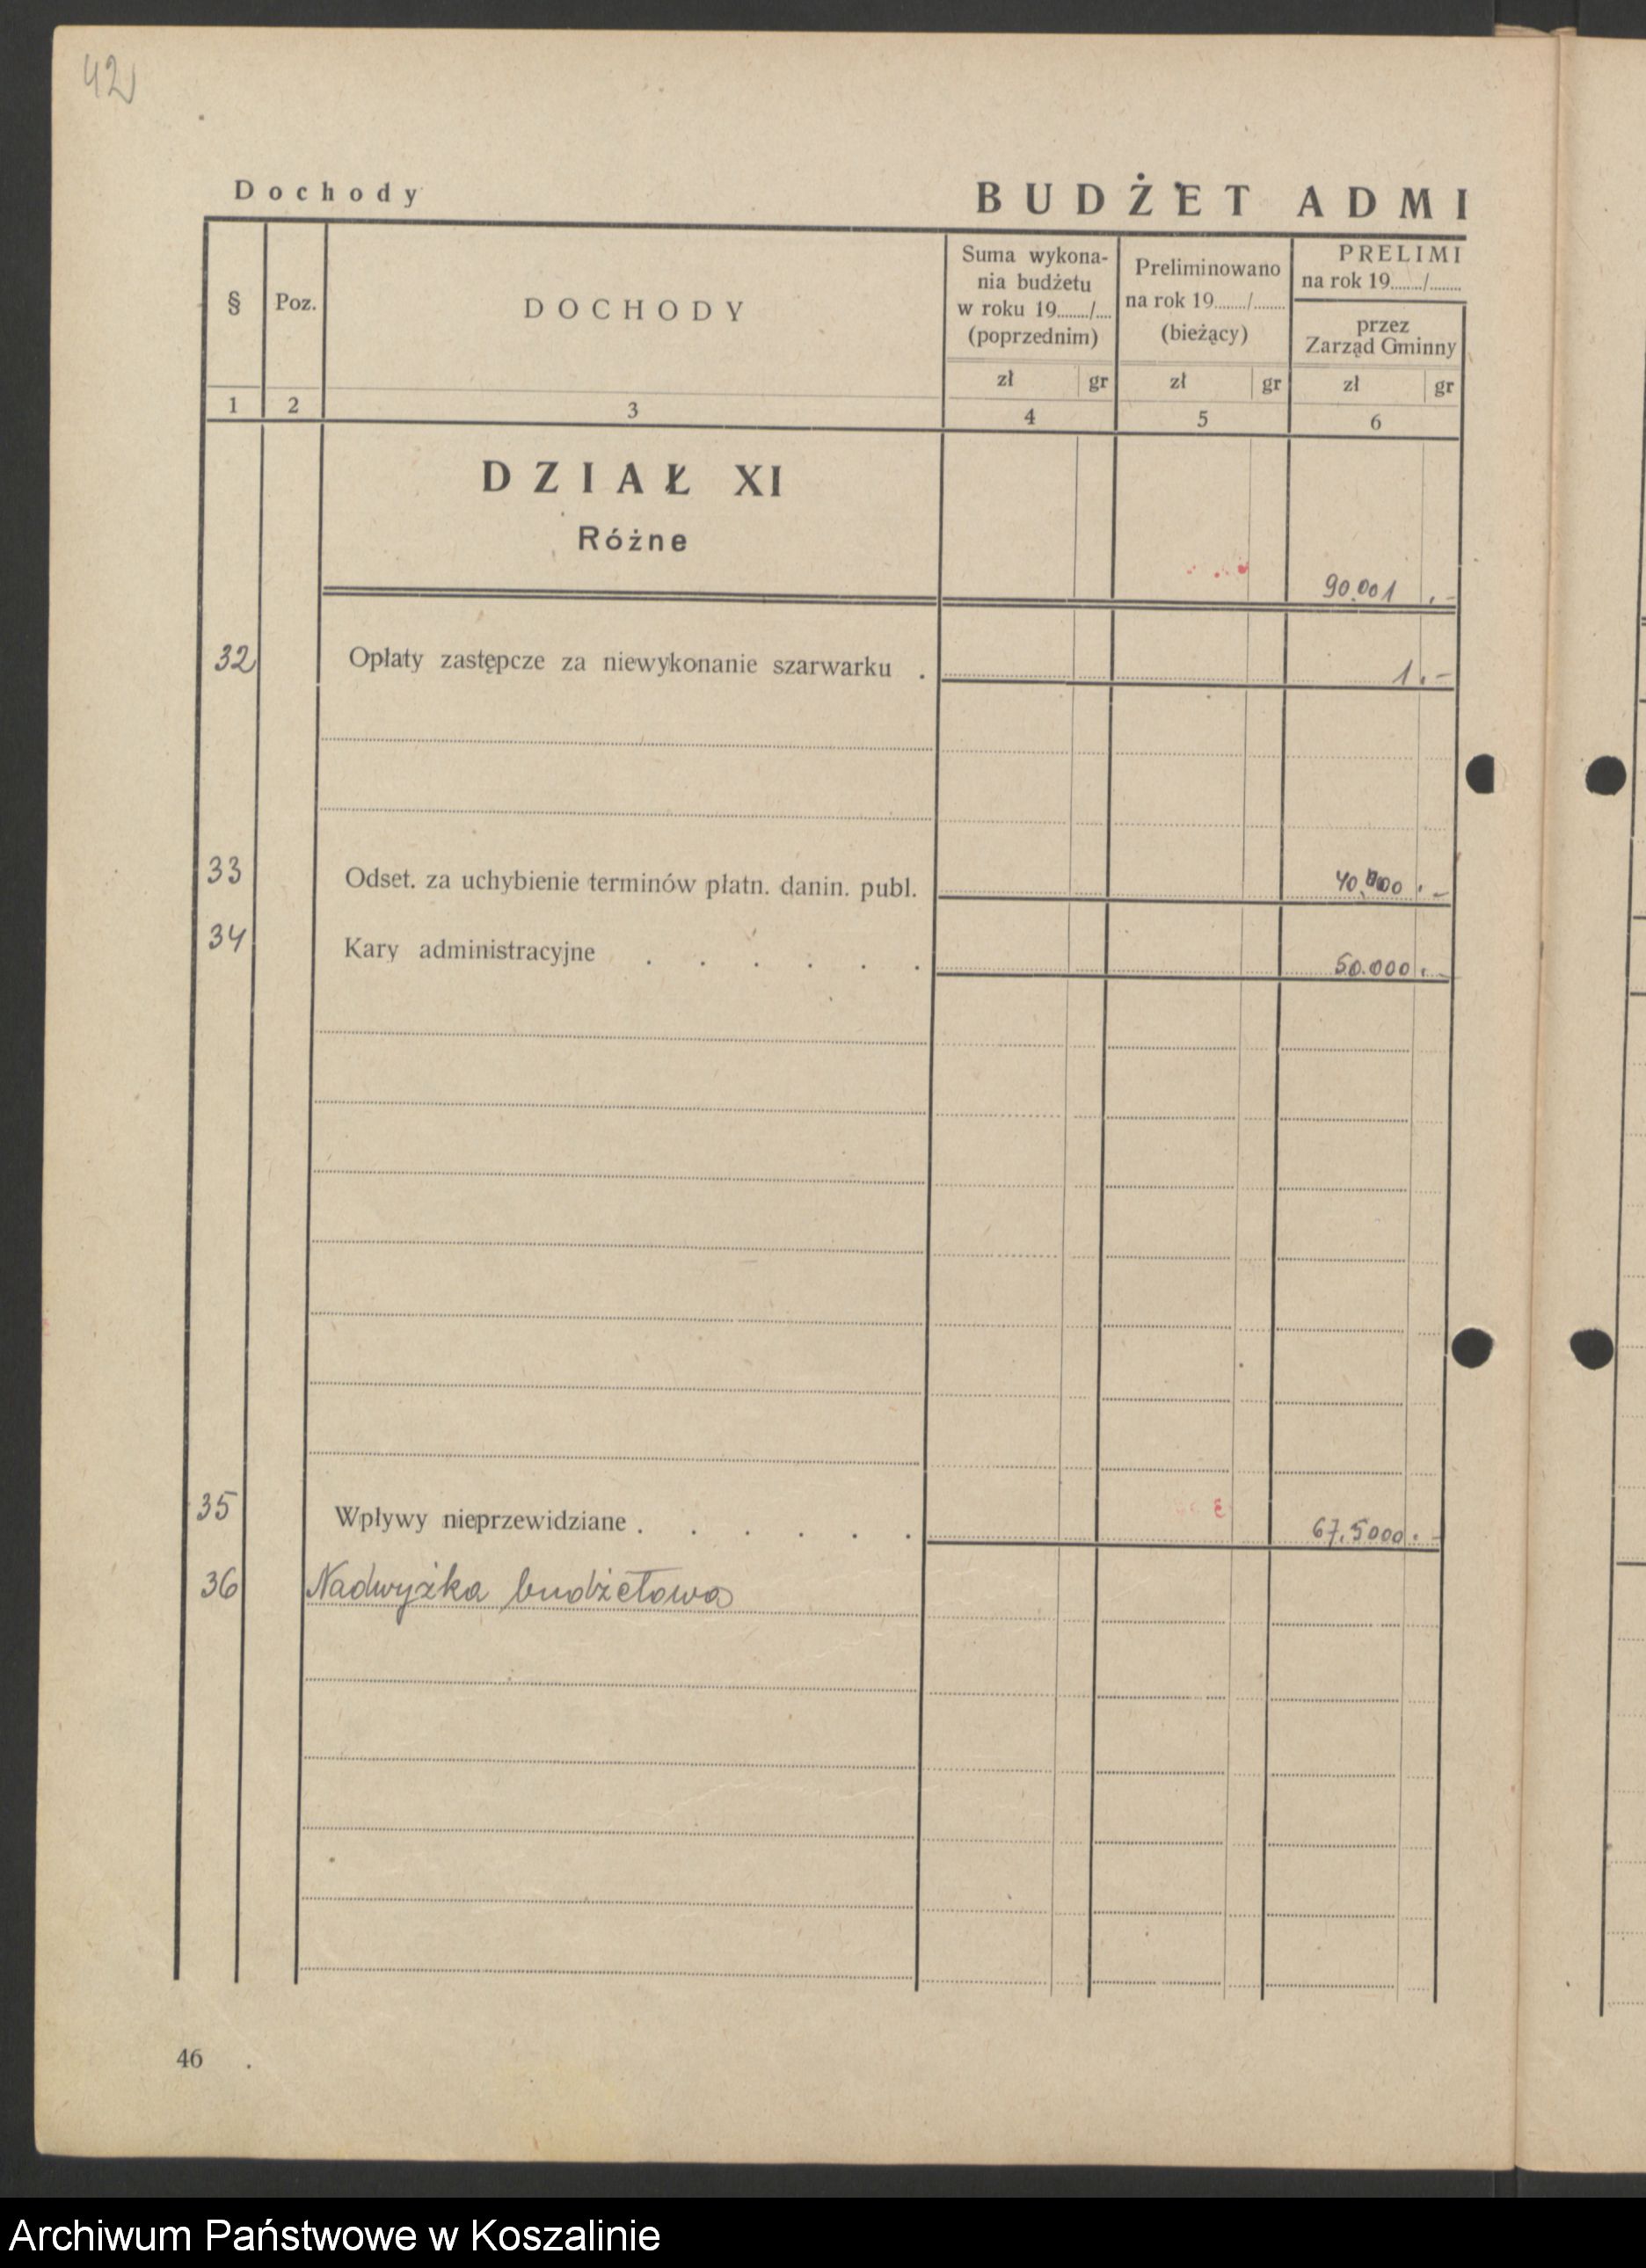 42
Dochody
BUDŻET ADMI
§
Poz.
DOCHODY
Suma wykona-
nia budżetu
w roku 19....../....
(poprzednim)
Preliminowano
na rok 19....../......
(bieżący)
PRELIMI
na rok 19....../......
przez
Zarząd Gminny
zł gr zł gr zł gr
1 2 3 4 5 6
DZIAŁ XI
Różne
90.001 .-
32 Opłaty zastępcze za niewykonanie szarwarku . 1.-
33 Odset. za uchybienie terminów płatn. danin. publ. 40.000.-
34 Kary administracyjne . . . . . . 50.000.-
35 Wpływy nieprzewidziane . . . . . . 67.5000.-
36 Nadwyżka budżetowa
46
Archiwum Państwowe w Koszalinie